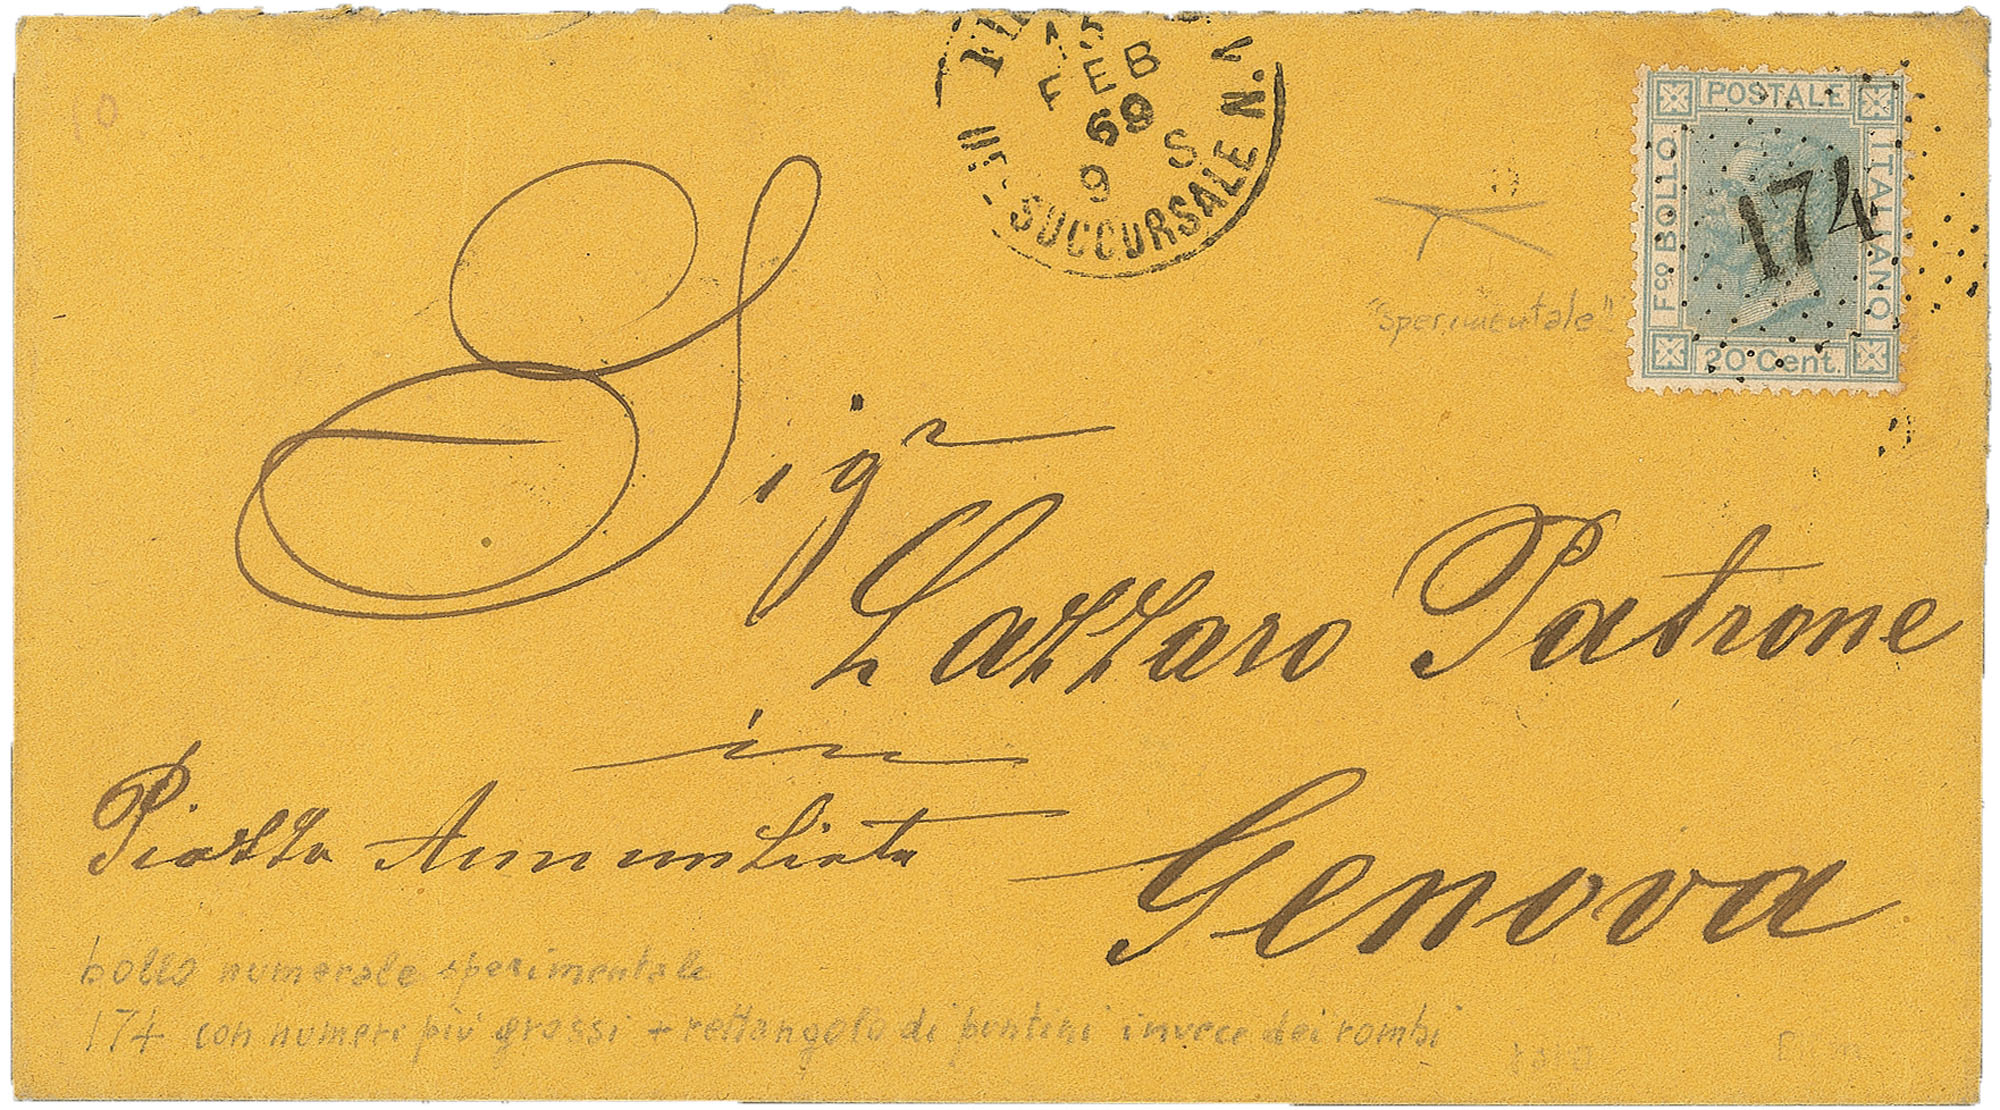 15
FEB
69
9 S
SUCCURSALE N.
POSTALE
Fco BOLLO
ITALIANO
20 Cent.
174
"sperimentale"
Sigr
Lazzaro Patrone
in
Piazza Annunziata
Genova
bollo numerale sperimentale
174 con numeri più grossi + rettangolo di puntini invece dei rombi
raro